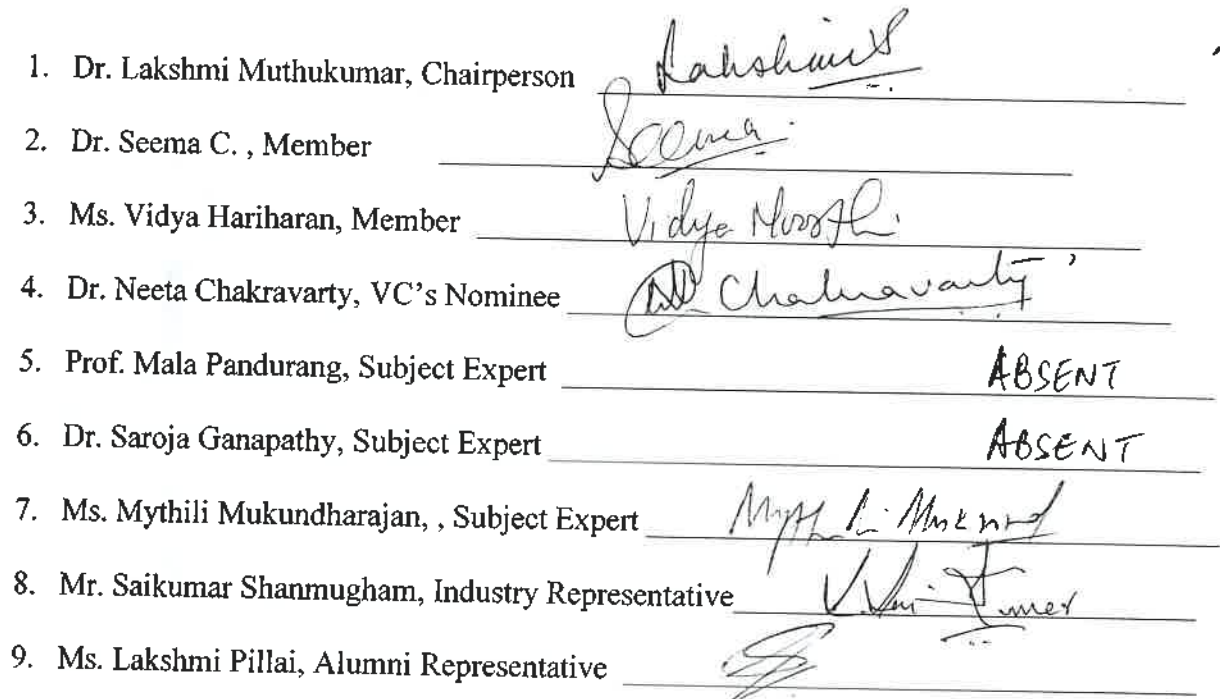 1. Dr. Lakshmi Muthukumar, Chairperson
2. Dr. Seema C. , Member Seema
3. Ms. Vidya Hariharan, Member Vidya
4. Dr. Neeta Chakravarty, VC's Nominee Chakravarty
5. Prof. Mala Pandurang, Subject Expert ABSENT
6. Dr. Saroja Ganapathy, Subject Expert ABSENT
7. Ms. Mythili Mukundharajan, , Subject Expert
8. Mr. Saikumar Shanmugham, Industry Representative
9. Ms. Lakshmi Pillai, Alumni Representative